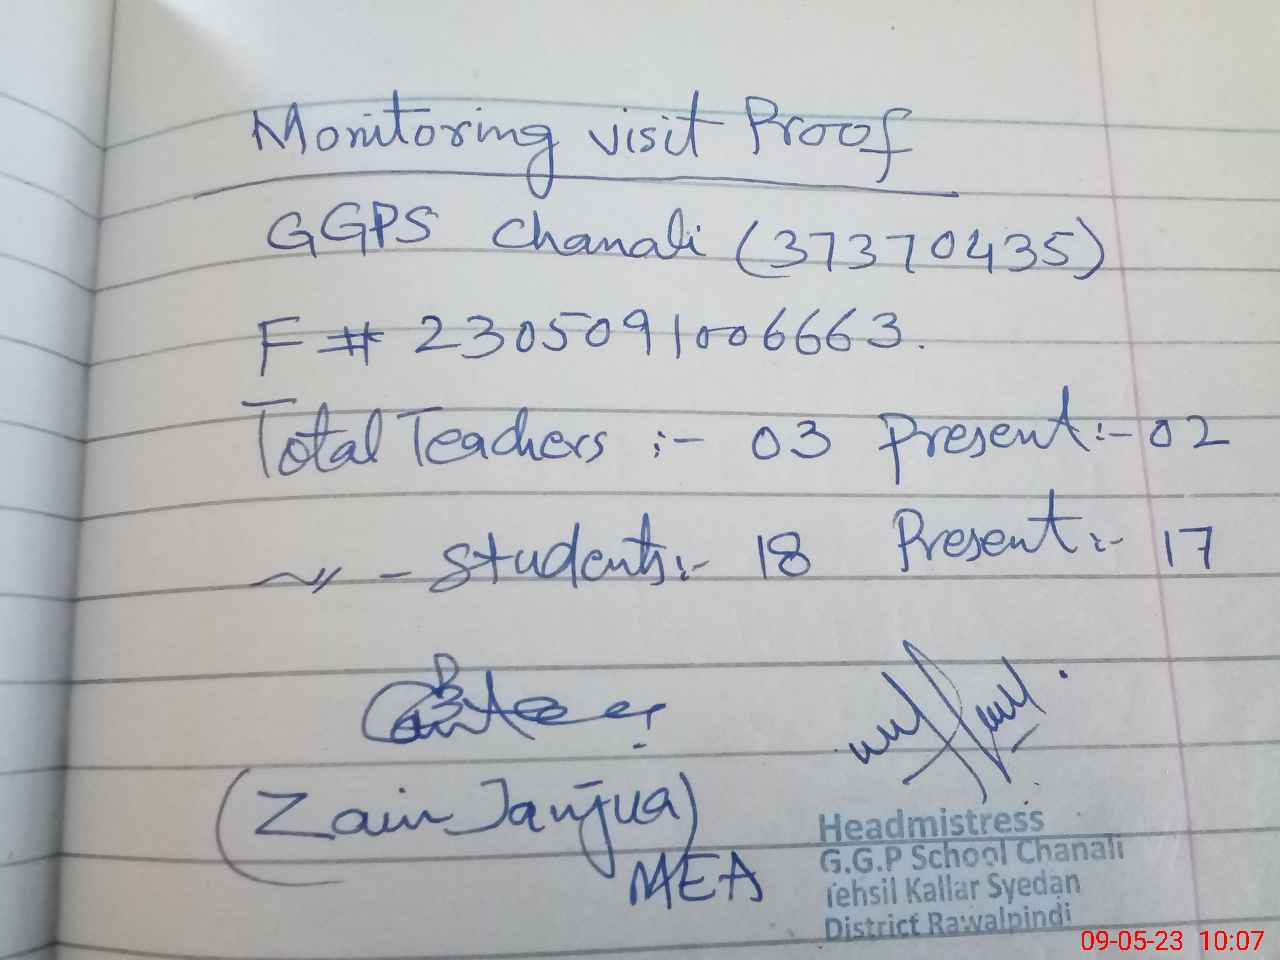 Monitoring visit Proof
GGPS Chanali (37370435)
F # 2305091006663.
Total Teachers :- 03 Present:- 02
〃 - Students:- 18 Present:- 17
(Zain Janjua)
MEA
Headmistress
G.G.P School Chanali
Tehsil Kallar Syedan
District Rawalpindi
09-05-23 10:07